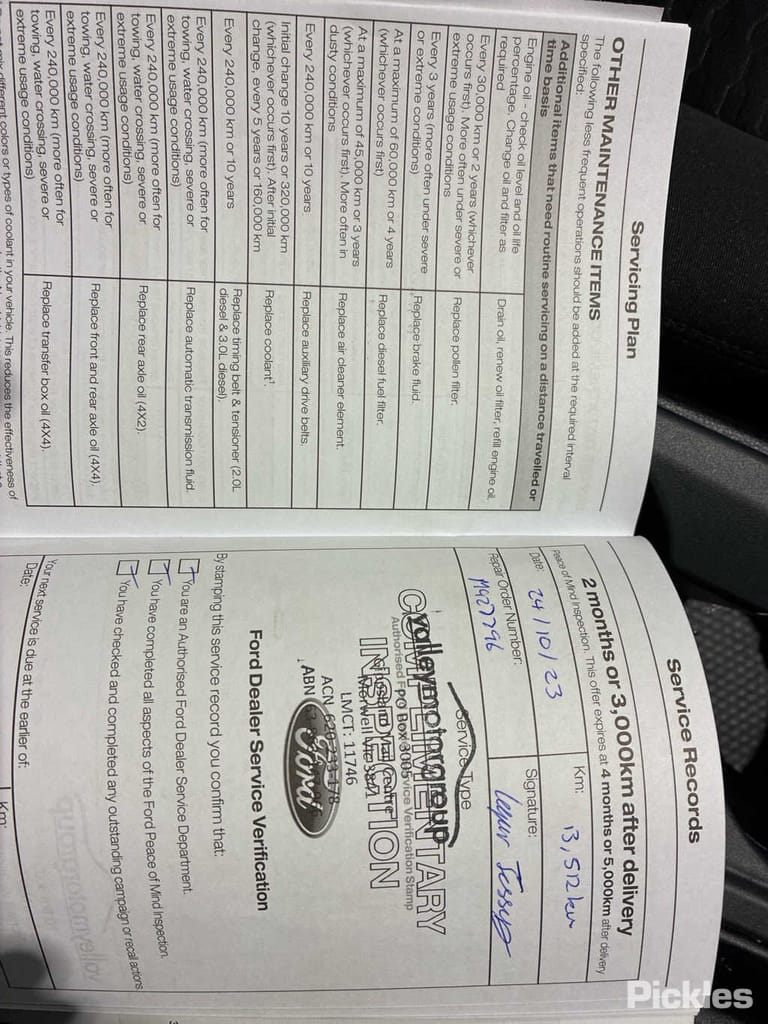 Servicing Plan
OTHER MAINTENANCE ITEMS
The following less frequent operations should be added at the required interval
specified:
Additional items that need routine servicing on a distance travelled or
time basis
Engine oil - check oil level and oil life
percentage. Change oil and filter as
required
Drain oil, renew oil filter, refill engine oil.
Every 30,000 km or 2 years (whichever
occurs first). More often under severe or
extreme usage conditions
Replace pollen filter.
Every 3 years (more often under severe
or extreme conditions)
Replace brake fluid.
At a maximum of 60,000 km or 4 years
(whichever occurs first)
Replace diesel fuel filter.
At a maximum of 45,000 km or 3 years
(whichever occurs first). More often in
dusty conditions
Replace air cleaner element.
Every 240,000 km or 10 years
Replace auxiliary drive belts.
Initial change 10 years or 320,000 km
(whichever occurs first). After initial
change, every 5 years or 160,000 km
Replace coolant¹.
Every 240,000 km or 10 years
Replace timing belt & tensioner (2.0L
diesel & 3.0L diesel).
Every 240,000 km (more often for
towing, water crossing, severe or
extreme usage conditions)
Replace automatic transmission fluid.
Every 240,000 km (more often for
towing, water crossing, severe or
extreme usage conditions)
Replace rear axle oil (4X2).
Every 240,000 km (more often for
towing, water crossing, severe or
extreme usage conditions)
Replace front and rear axle oil (4X4).
Every 240,000 km (more often for
towing, water crossing, severe or
extreme usage conditions)
Replace transfer box oil (4X4).
mix different colors or types of coolant in your vehicle. This reduces the effectiveness of
Service Records
2 months or 3,000km after delivery
Peace of Mind Inspection. This offer expires at 4 months or 5,000km after delivery
Date: 24/10/23
Km: 13,512km
Repair Order Number:
M927796
Signature:
Service Type
COMPLIMENTARY
INSPECTION
valleymotorgroup
Authorised Service Verification Stamp
PO Box 3005
LMCT: 11746
ACN
ABN
Ford
Ford Dealer Service Verification
By stamping this service record you confirm that:
You are an Authorised Ford Dealer Service Department.
You have completed all aspects of the Ford Peace of Mind Inspection.
You have checked and completed any outstanding campaign or recall actions
Your next service is due at the earlier of:
Date:
Km:
Pickles